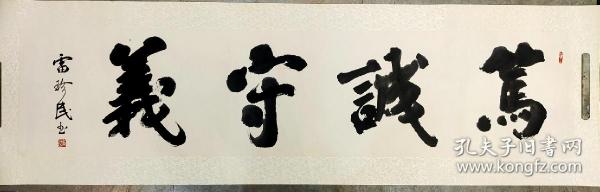 篤誠守義
雷珍民书
孔夫子旧书网
www.kongfz.com